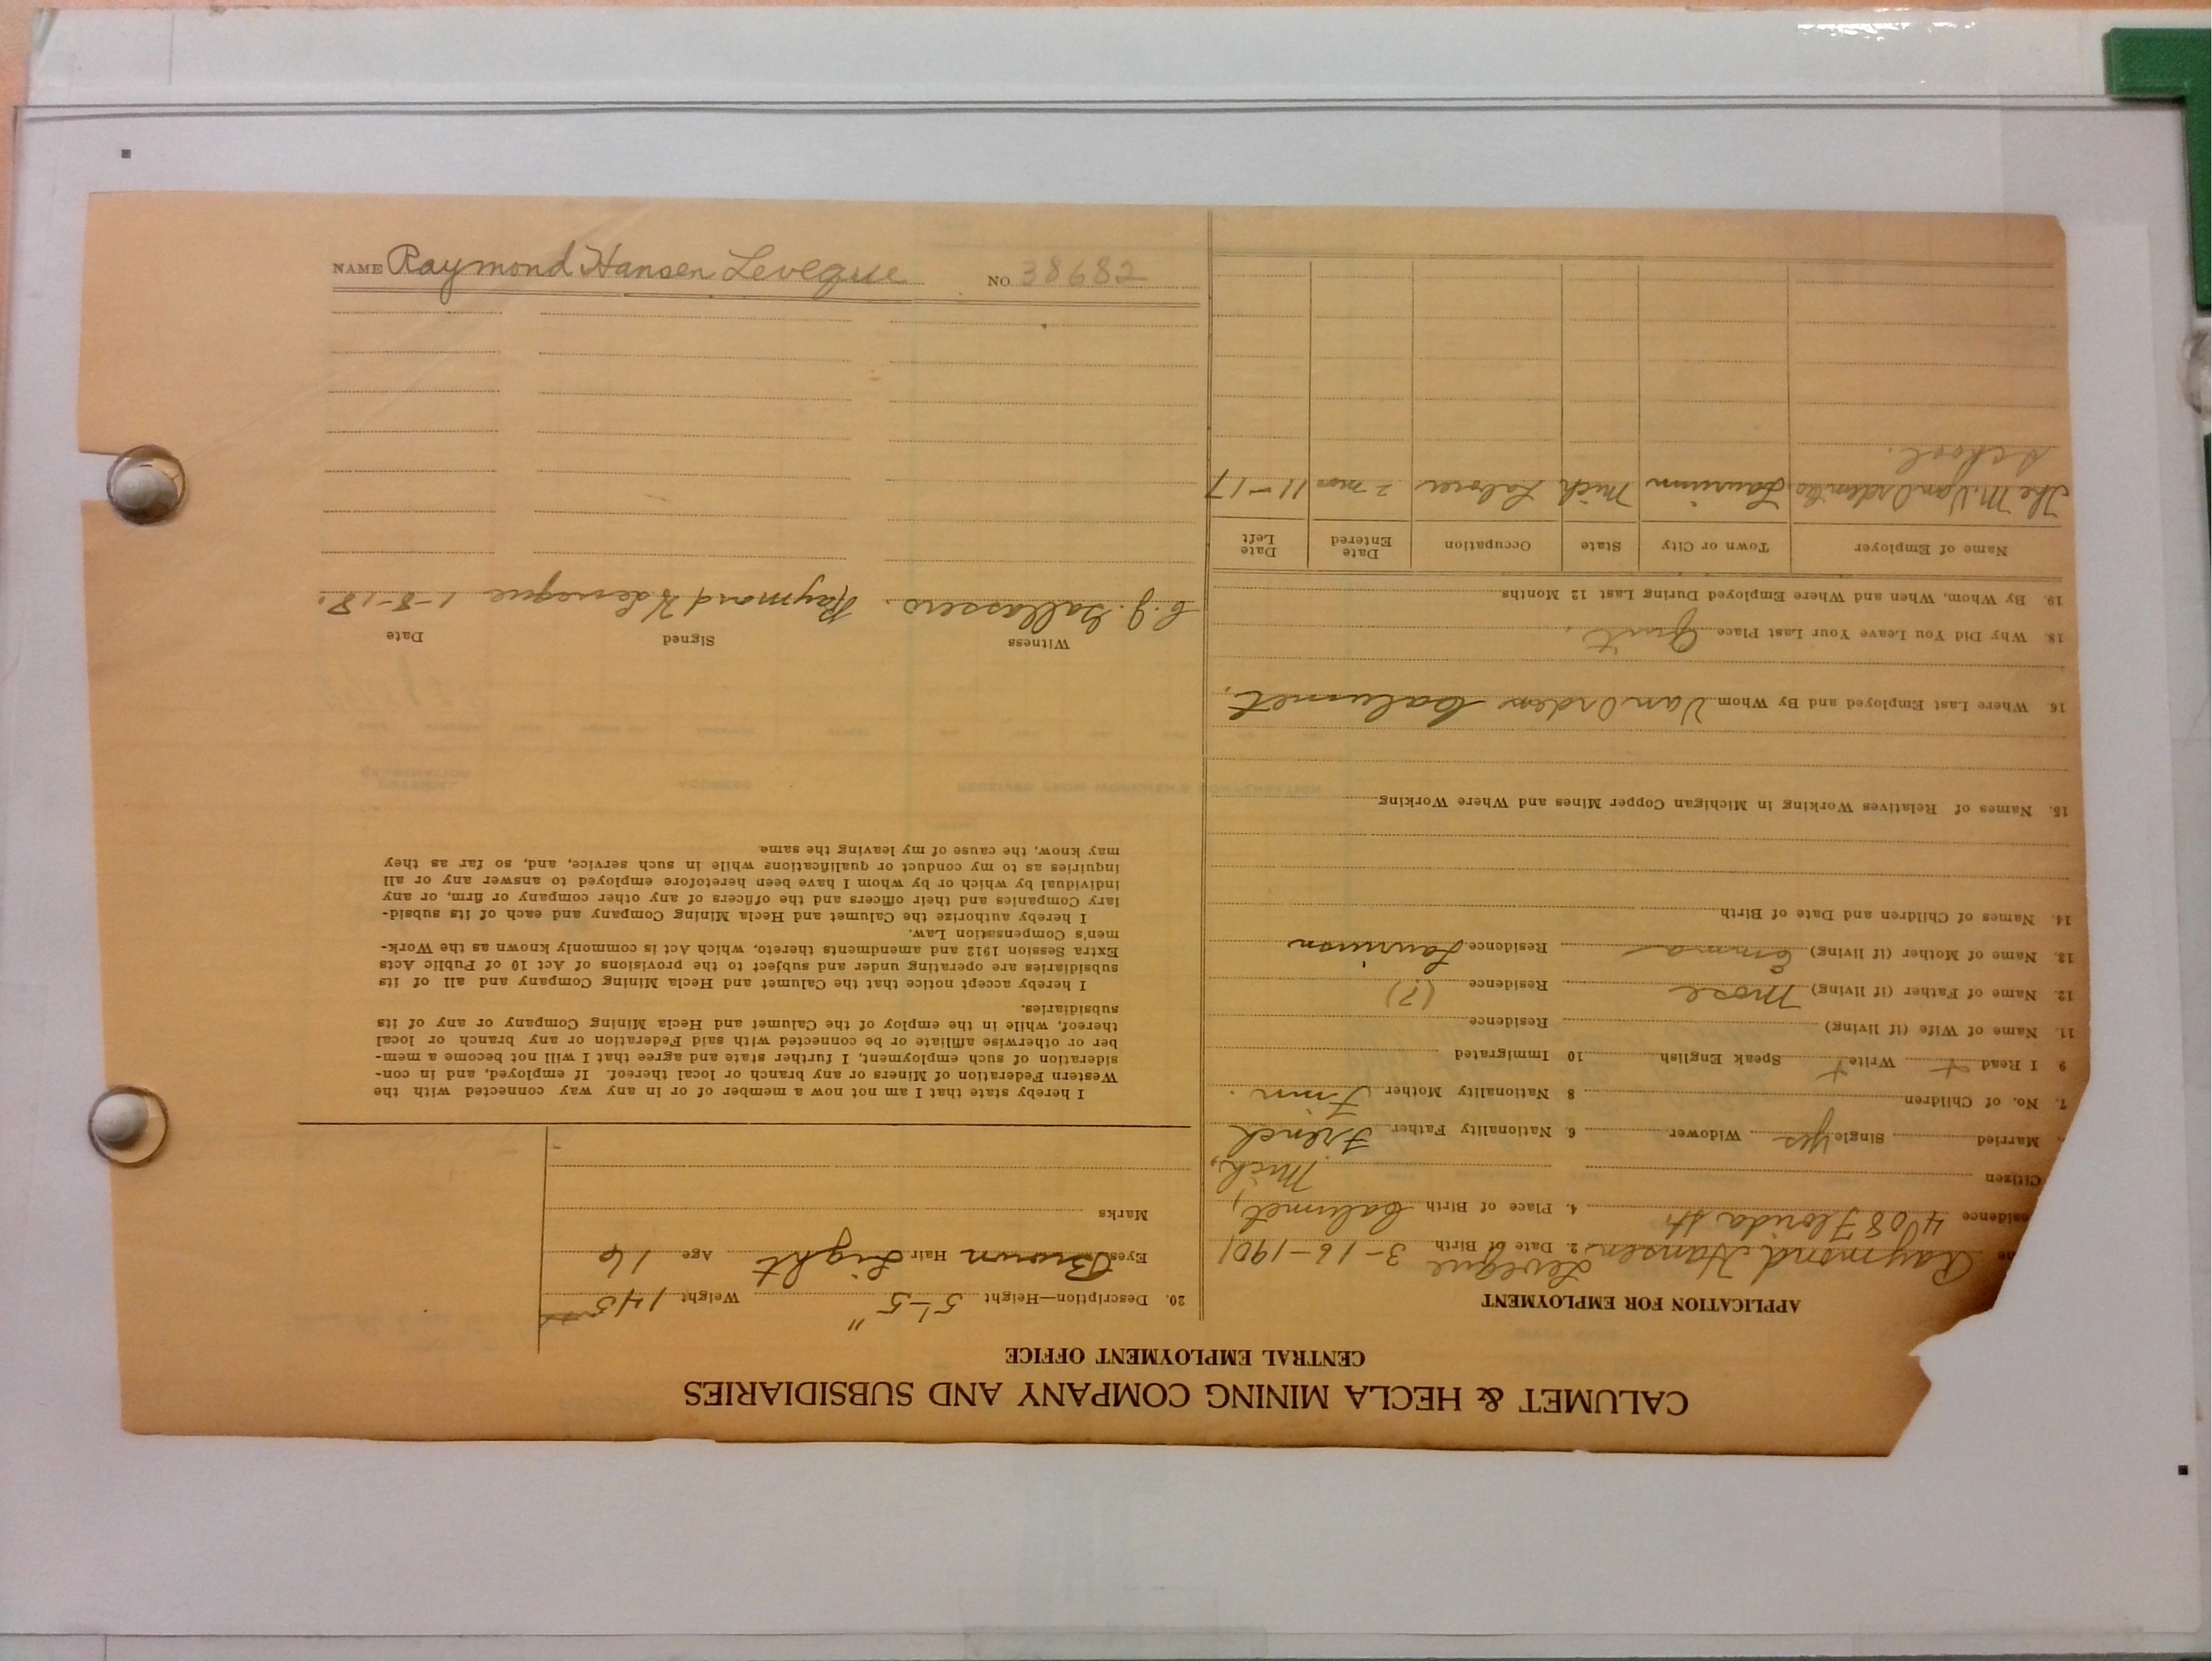 NAME Raymond Hansen Leveque NO. 38682
CALUMET & HECLA MINING COMPANY AND SUBSIDIARIES
CENTRAL EMPLOYMENT OFFICE
APPLICATION FOR EMPLOYMENT
me Raymond Hansen Leveque 2. Date of Birth 3-16-1901
esidence 408 Florida St 4. Place of Birth Calumet,
Citizen Mich.
Married Single yes Widower 6. Nationality Father French
7. No. of Children 8 Nationality Mother Finn.
9 I Read + Write + Speak English 10 Immigrated
11. Name of Wife (if living) Residence
12. Name of Father (if living) Mose Residence (?)
13. Name of Mother (if living) Emma Residence Laurium
14. Names of Children and Date of Birth
15. Names of Relatives Working in Michigan Copper Mines and Where Working
16. Where Last Employed and By Whom Van Orden Calumet.
18. Why Did You Leave Your Last Place Quit.
19. By Whom, When and Where Employed During Last 12 Months
Name of Employer Town or City State Occupation Date Entered Date Left
The M. Van Orden Co Laurium Mich Laborer 2 mos 11-17
School.
20. Description—Height 5'-5" Weight 145
Eyes Brown Hair Light Age 16
Marks
I hereby state that I am not now a member of or in any way connected with the
Western Federation of Miners or any branch or local thereof. If employed, and in con-
sideration of such employment, I further state and agree that I will not become a mem-
ber or otherwise affiliate or be connected with said Federation or any branch or local
thereof, while in the employ of the Calumet and Hecla Mining Company or any of its
subsidiaries.
I hereby accept notice that the Calumet and Hecla Mining Company and all of its
subsidiaries are operating under and subject to the provisions of Act 10 of Public Acts
Extra Session 1912 and amendments thereto, which Act is commonly known as the Work-
men's Compensation Law.
I hereby authorize the Calumet and Hecla Mining Company and each of its subsid-
iary Companies and their officers and the officers of any other company or firm, or any
individual by which or by whom I have been heretofore employed to answer any or all
inquiries as to my conduct or qualifications while in such service, and, so far as they
may know, the cause of my leaving the same.
Witness Signed Date
C.J. Raymond H Leveque 1-8-18.